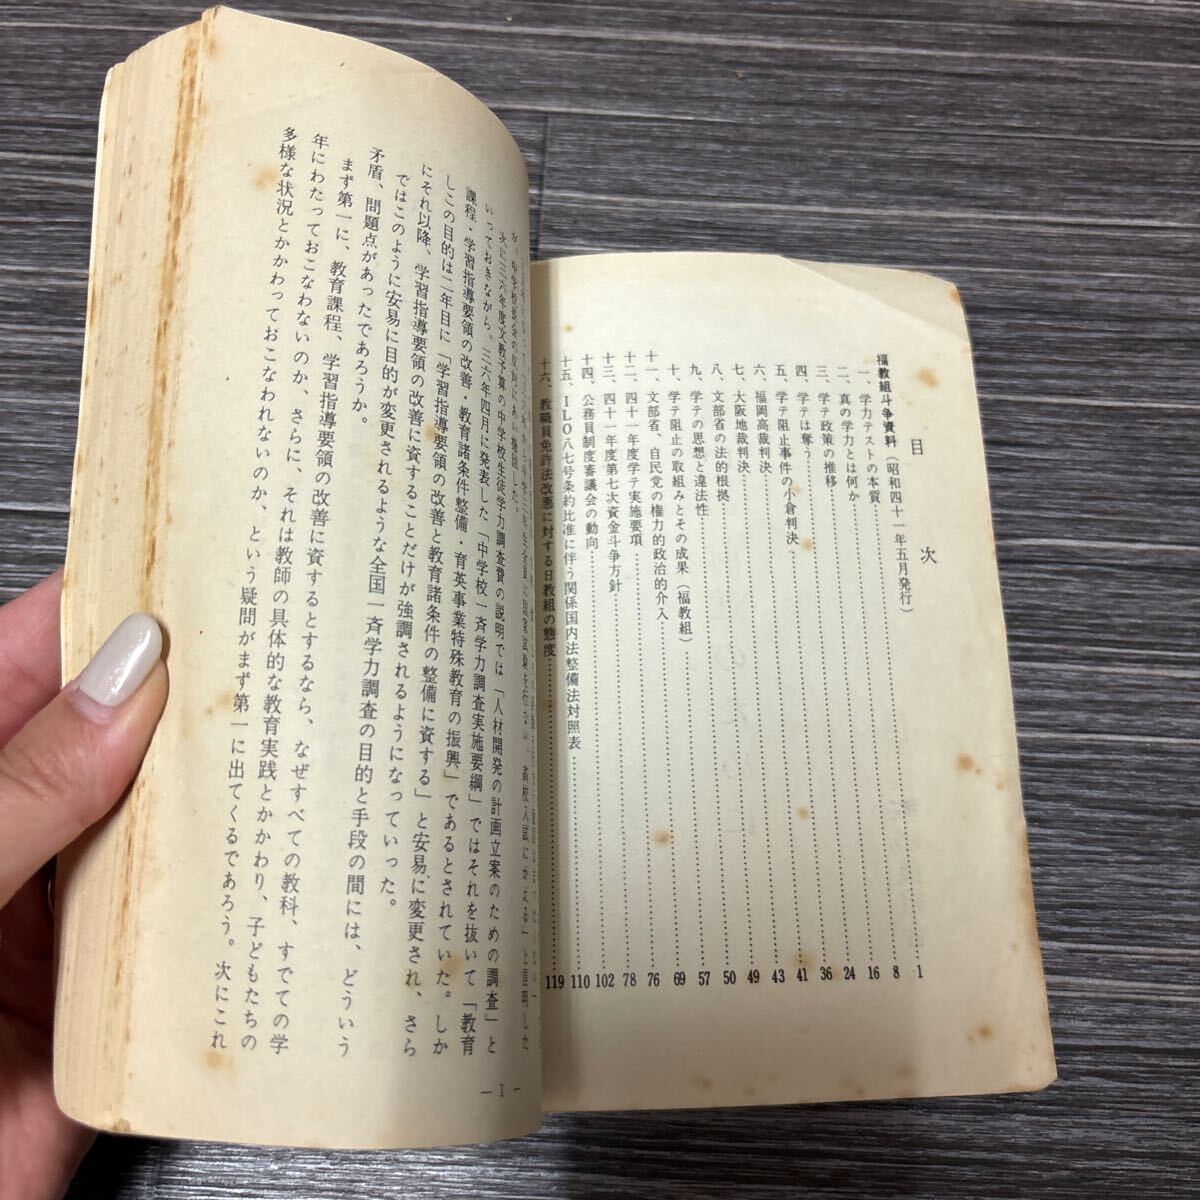 目次
福教組斗争資料（昭和四十一年五月発行）
一、学力テストの本質 1
二、真の学力とは何か 8
三、学テ政策の推移 16
四、学テは奪う 24
五、学テ阻止事件の小倉判決 36
六、福岡高裁判決 41
七、大阪地裁判決 43
八、文部省の法的根拠 49
九、学テの思想と違法性 50
十、学テ阻止の取組みとその成果（福教組） 57
十一、文部省、自民党の権力的政治的介入 69
十二、四十一年度学テ実施要項 76
十三、四十一年度第七次資金斗争方針 78
十四、公務員制度審議会の動向 102
十五、ILO八七号条約批准に伴う関係国内法整備法対照表 110
十六、教職員免許法改悪に対する日教組の態度 119
次に三六年度文教予算の中学校生徒学力調査費の説明では「人材開発の計画立案のための調査」と
いっておきながら、三六年四月に発表した「中学校一斉学力調査実施要綱」ではそれを抜いて「教育
課程・学習指導要領の改善・教育諸条件整備・育英事業特殊教育の振興」であるとされていた。しか
しこの目的は二年目に「学習指導要領の改善と教育諸条件の整備に資する」と安易に変更され、さら
にそれ以降、学習指導要領の改善に資することだけが強調されるようになっていった。
ではこのように安易に目的が変更されるような全国一斉学力調査の目的と手段の間には、どういう
矛盾、問題点があったであろうか。
まず第一に、教育課程、学習指導要領の改善に資するとするなら、なぜすべての教科、すでての学
年にわたっておこなわないのか、さらに、それは教師の具体的な教育実践とかかわり、子どもたちの
多様な状況とかかわっておこなわれないのか、という疑問がまず第一に出てくるであろう。次にこれ
— 1 —